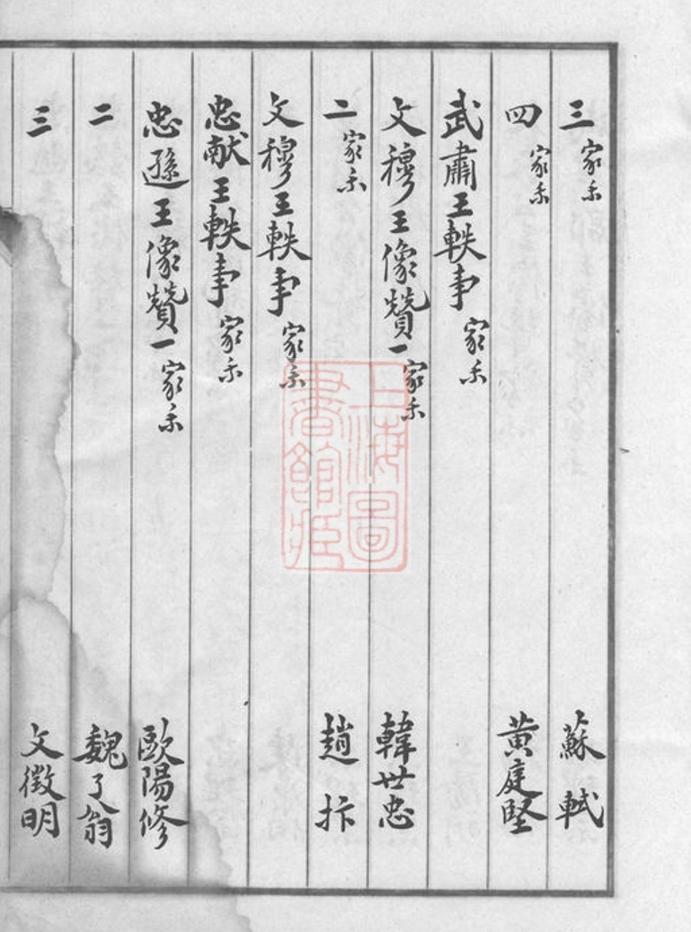 三 家乘 蘇軾
四 家乘 黃庭堅
武肅王軼事 家乘
文穆王像贊一 家乘 韓世忠
二 家乘 趙抃
文穆王軼事 家乘
忠献王軼事 家乘
忠遜王像贊一 家乘 歐陽修
二 魏了翁
三 文徵明
上海圖
書館藏